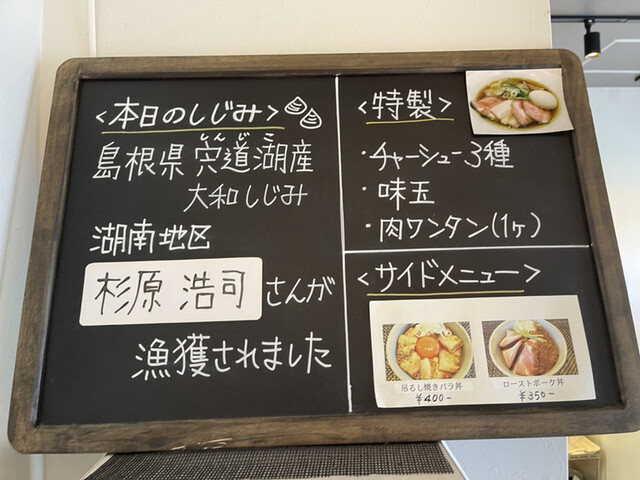 <本日のしじみ>
しんじこ
島根県宍道湖産
大和しじみ
湖南地区
杉原 浩司 さんが
漁獲されました
<特製>
・チャーシュー3種
・味玉
・肉ワンタン(1ヶ)
<サイドメニュー>
吊るし焼きバラ丼
¥400-
ローストポーク丼
¥350-